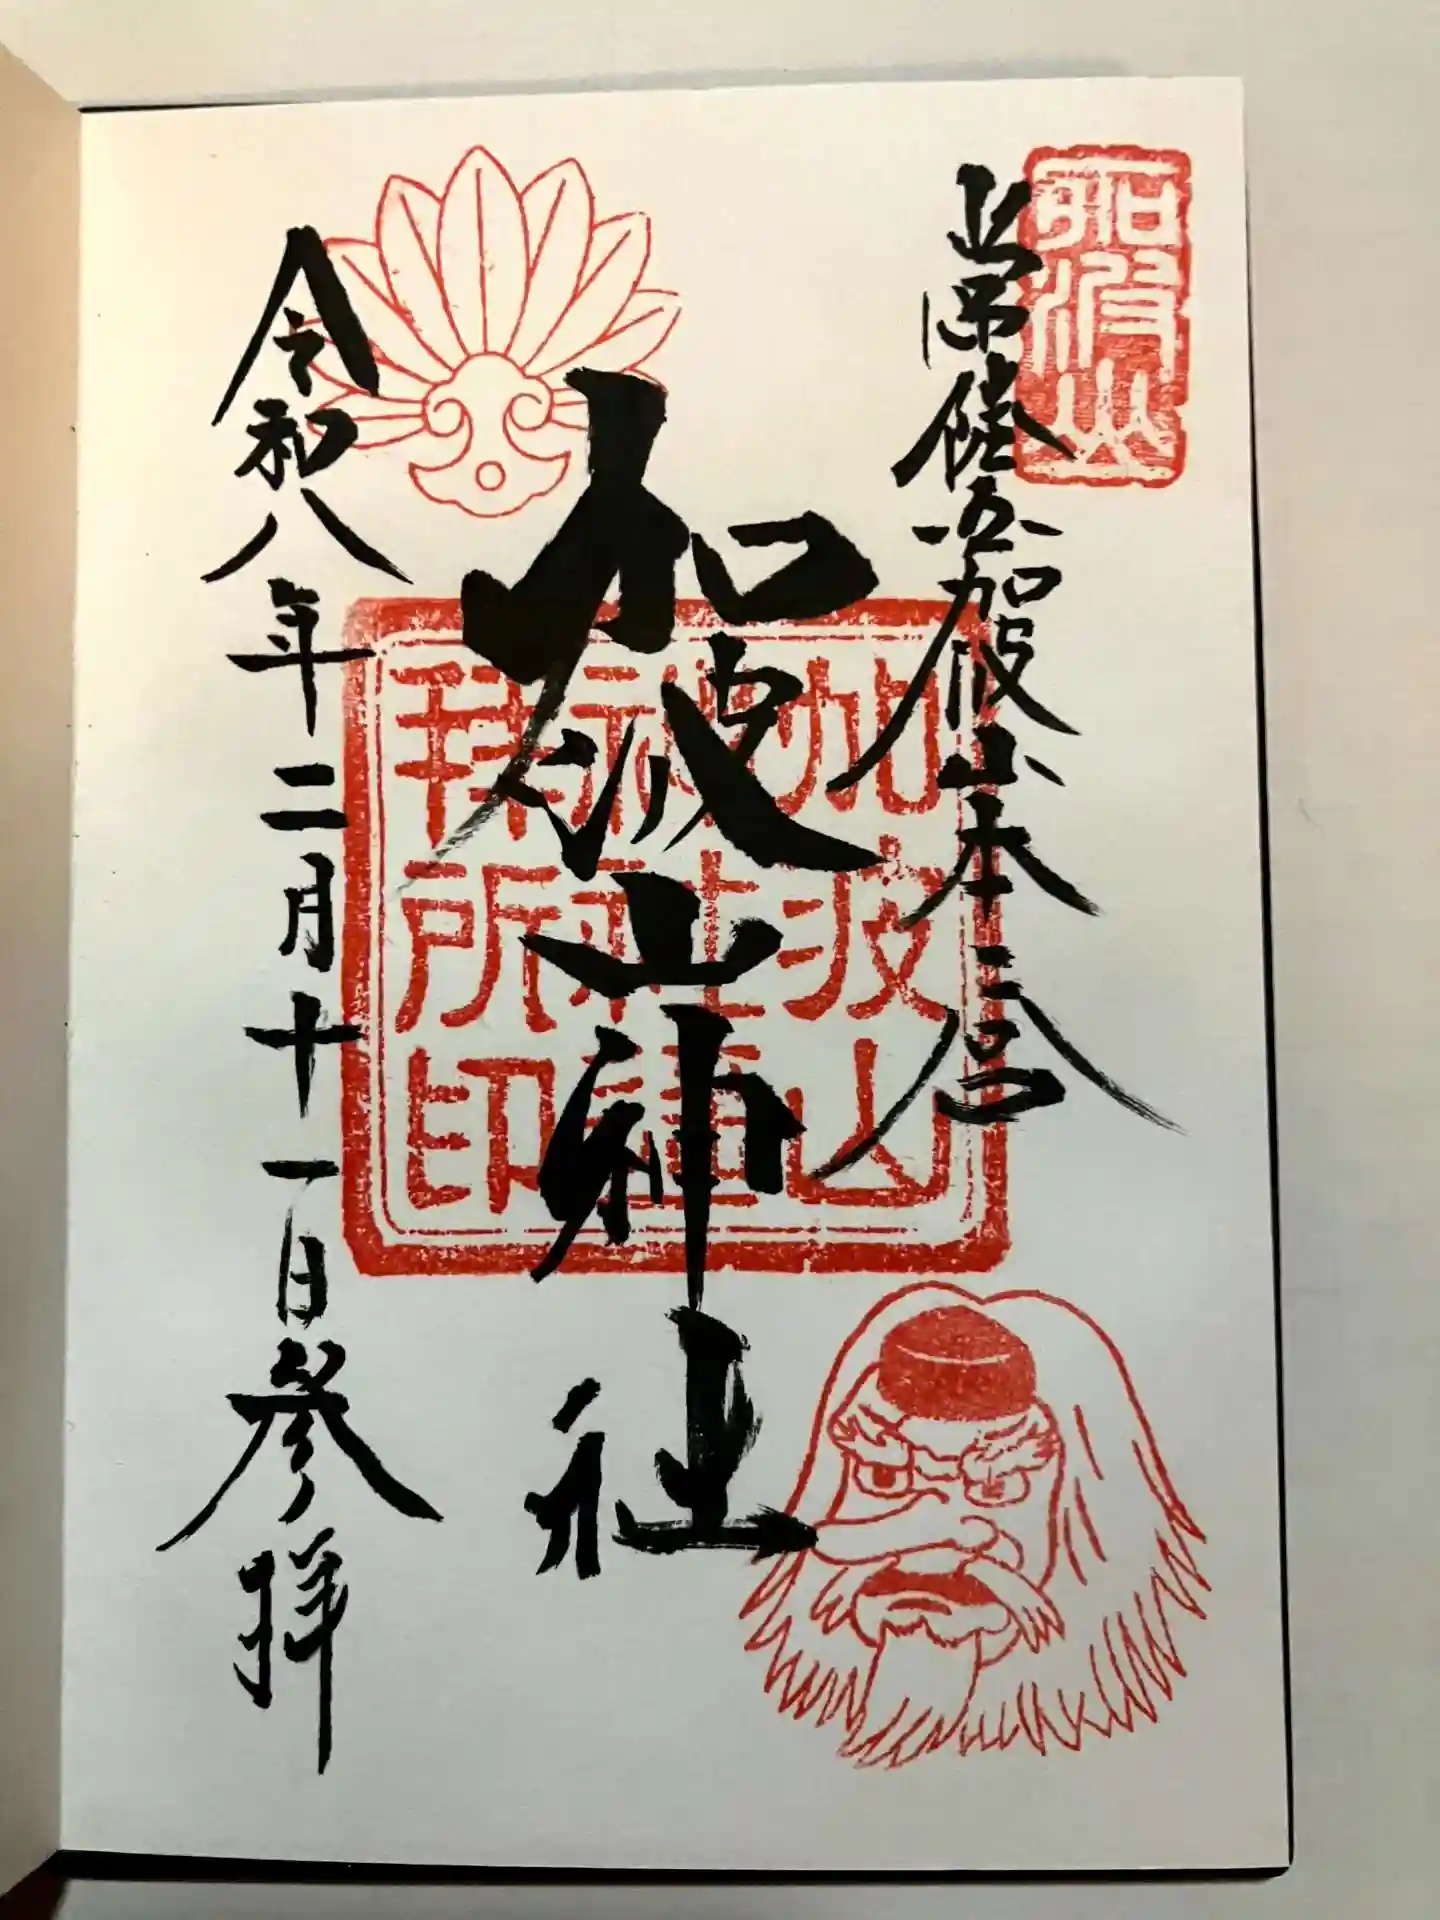 加波山
加波山本
加波山神社
加波山
神社
拝所印
令和八年二月十一日参拝